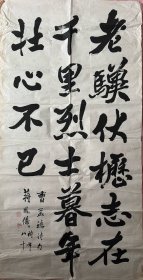 老驥伏櫪志在
千里烈士暮年
壯心不已
曹孟德詩句